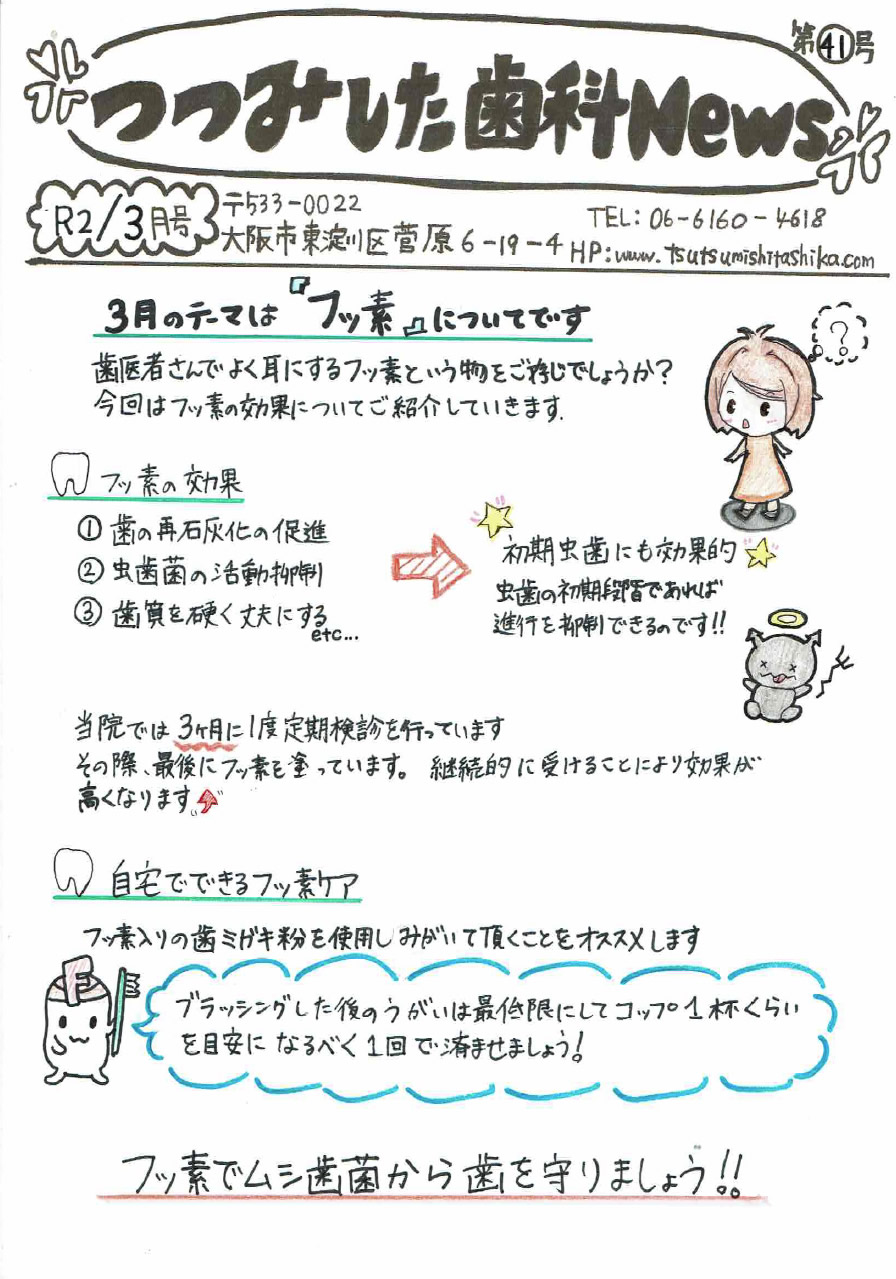 第㊶号
つつみした歯科News
R2/3月号
〒533-0022
大阪市東淀川区菅原6-19-4
TEL: 06-6160-4618
HP: www.tsutsumishitashika.com
3月のテーマは『フッ素』についてです
歯医者さんでよく耳にするフッ素という物をご存じでしょうか?
今回はフッ素の効果についてご紹介していきます.
?
フッ素の効果
① 歯の再石灰化の促進
② 虫歯菌の活動抑制
③ 歯質を硬く丈夫にする
etc...
初期虫歯にも効果的
虫歯の初期段階であれば
進行を抑制できるのです!!
当院では3ヶ月に1度定期検診を行っています
その際、最後にフッ素を塗っています。 継続的に受けることにより効果が
高くなります
自宅でできるフッ素ケア
フッ素入りの歯ミガキ粉を使用しみがいて頂くことをオススメします
ブラッシングした後のうがいは最低限にしてコップ1杯くらい
を目安に なるべく1回で済ませましょう!
フッ素でムシ歯菌から歯を守りましょう!!